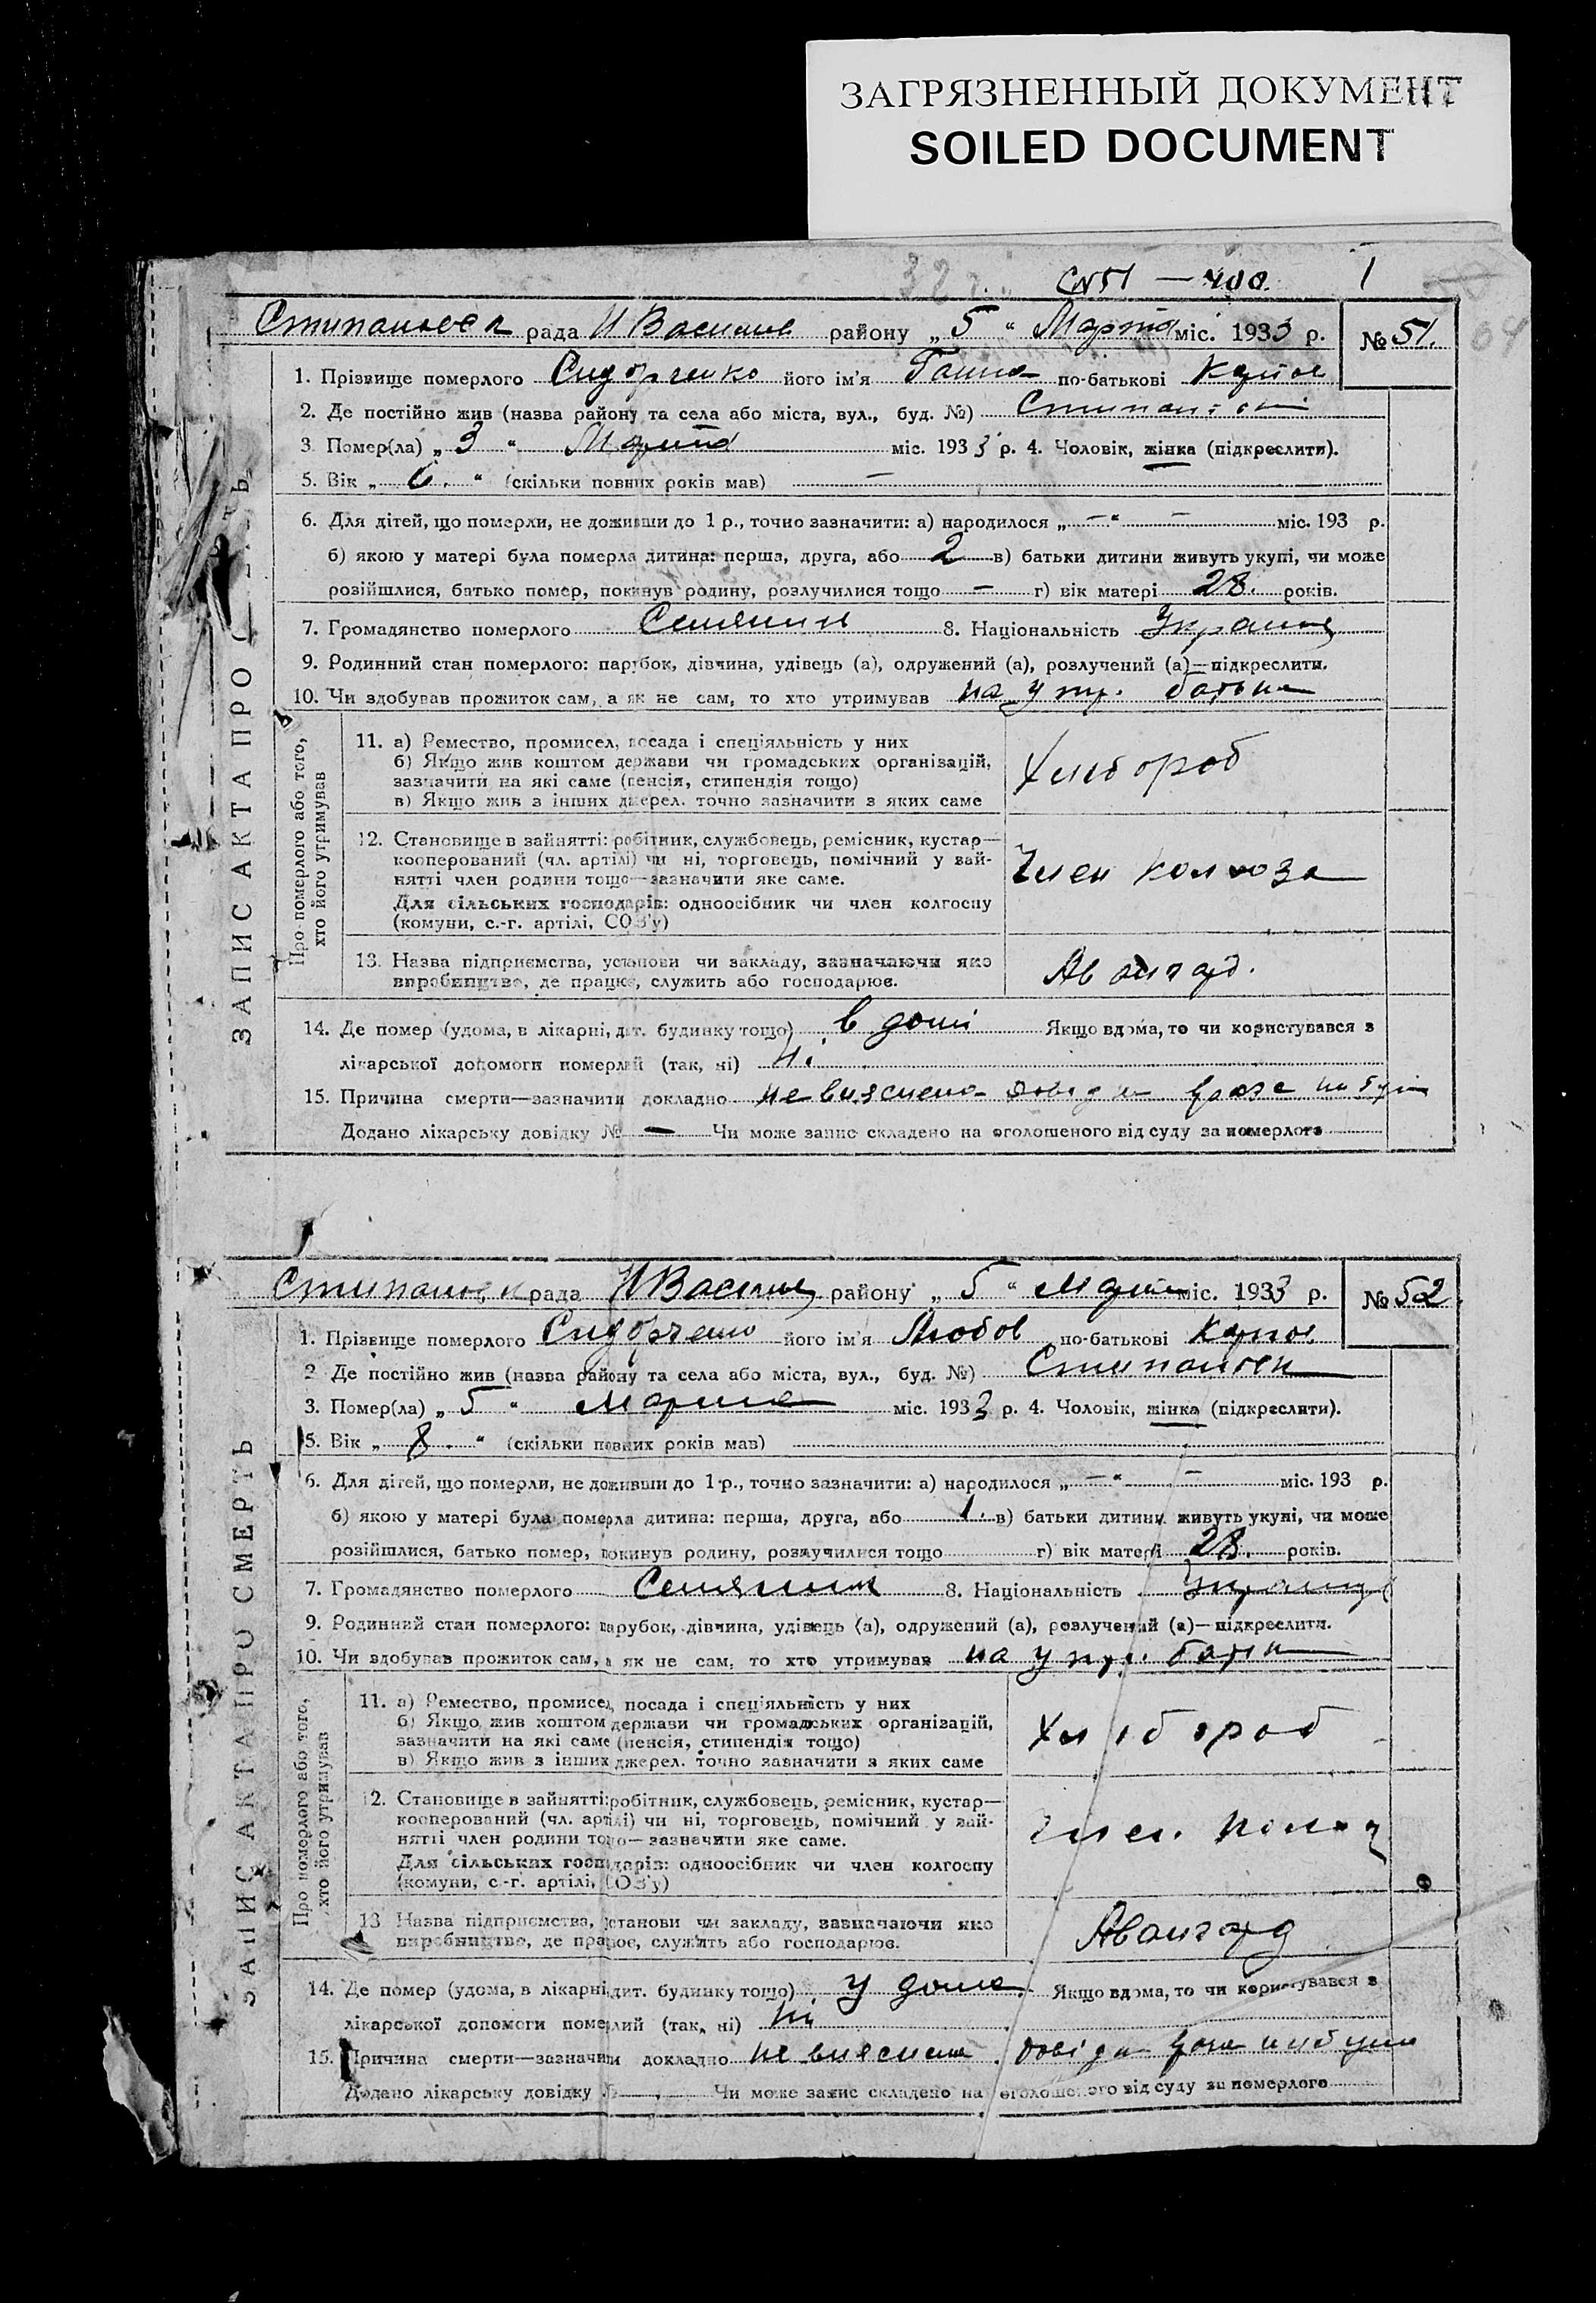 ЗАГРЯЗНЕННЫЙ ДОКУМЕНТ
SOILED DOCUMENT
с №51 — 100 1
рада Н Василів району „5“ Марта міс. 1933 р. № 51.
ЗАПИС АКТА ПРО
1. Прізвище померлого Сидорченко його ім'я Ганна по-батькові Карпов
2. Де постійно жив (назва району та села або міста, вул., буд. №)
3. Помер(ла) „3“ Марта міс. 1933 р. 4. Чоловік, жінка (підкреслити).
5. Вік „6.“ (скільки повних років мав) —
6. Для дітей, що померли, не доживши до 1 р., точно зазначити: а) народилося „—“ — міс. 193 р.
б) якою у матері була померла дитина: перша, друга, або 2 в) батьки дитини живуть укупі, чи може
розійшлися, батько помер, покинув родину, розлучилися тощо — г) вік матері 28. років.
7. Громадянство померлого Селянин 8. Національність
9. Родинний стан померлого: парубок, дівчина, удівець (а), одружений (а), розлучений (а)—підкреслити.
10. Чи здобував прожиток сам, а як не сам, то хто утримував на утр. батька
Про померлого або того,
хто його утримував
11. а) Ремество, промисел, посада і спеціяльність у них
б) Якщо жив коштом держави чи громадських організацій,
зазначити на які саме (пенсія, стипендія тощо)
в) Якщо жив з інших джерел. точно зазначити з яких саме
Хлібороб
12. Становище в зайнятті: робітник, службовець, ремісник, кустар—
кооперований (чл. артілі) чи ні, торговець, помічний у зай-
нятті член родини тощо—зазначити яке саме.
Для сільських господарів: одноосібник чи член колгоспу
(комуни, с.-г. артілі, СОЗ'у)
Член колхоза
13. Назва підприємства, установи чи закладу, зазначаючи яко
виробництво, де працює, служить або господарює.
Авангард.
14. Де помер (удома, в лікарні, дит. будинку тощо) в домі Якщо вдома, то чи користувався з
лікарської допомоги померлий (так, ні) Ні
15. Причина смерти—зазначити докладно не вияснена
Додано лікарську довідку № — Чи може запис складено на оголошеного від суду за померлого
рада Н Василів району „5“ Марта міс. 1933 р. № 52.
ЗАПИС АКТА ПРО СМЕРТЬ
1. Прізвище померлого Сидорченко його ім'я Любов по-батькові Карпов
2. Де постійно жив (назва району та села або міста, вул., буд. №)
3. Помер(ла) „5“ Марта міс. 1933 р. 4. Чоловік, жінка (підкреслити).
5. Вік „8.“ (скільки повних років мав)
6. Для дітей, що померли, не доживши до 1 р., точно зазначити: а) народилося „—“ — міс. 193 р.
б) якою у матері була померла дитина: перша, друга, або 1. в) батьки дитини живуть укупі, чи може
розійшлися, батько помер, покинув родину, розлучилися тощо г) вік матері 28. років.
7. Громадянство померлого Селянин 8. Національність
9. Родинний стан померлого: парубок, дівчина, удівець (а), одружений (а), розлучений (а)—підкреслити.
10. Чи здобував прожиток сам, а як не сам, то хто утримував на утр.
Про померлого або того,
хто його утримував
11. а) Ремество, промисел, посада і спеціяльність у них
б) Якщо жив коштом держави чи громадських організацій,
зазначити на які саме (пенсія, стипендія тощо)
в) Якщо жив з інших джерел. точно зазначити з яких саме
Хлібороб
12. Становище в зайнятті: робітник, службовець, ремісник, кустар—
кооперований (чл. артілі) чи ні, торговець, помічний у зай-
нятті член родини тощо—зазначити яке саме.
Для сільських господарів: одноосібник чи член колгоспу
(комуни, с.-г. артілі, СОЗ'у)
член
13 Назва підприємства, установи чи закладу, зазначаючи яко
виробництво, де працює, служить або господарює.
Авангард
14. Де помер (удома, в лікарні, дит. будинку тощо) у дома Якщо вдома, то чи користувався з
лікарської допомоги померлий (так, ні) Ні
15. Причина смерти—зазначити докладно не вияснена
Додано лікарську довідку № — Чи може запис складено на оголошеного від суду за померлого